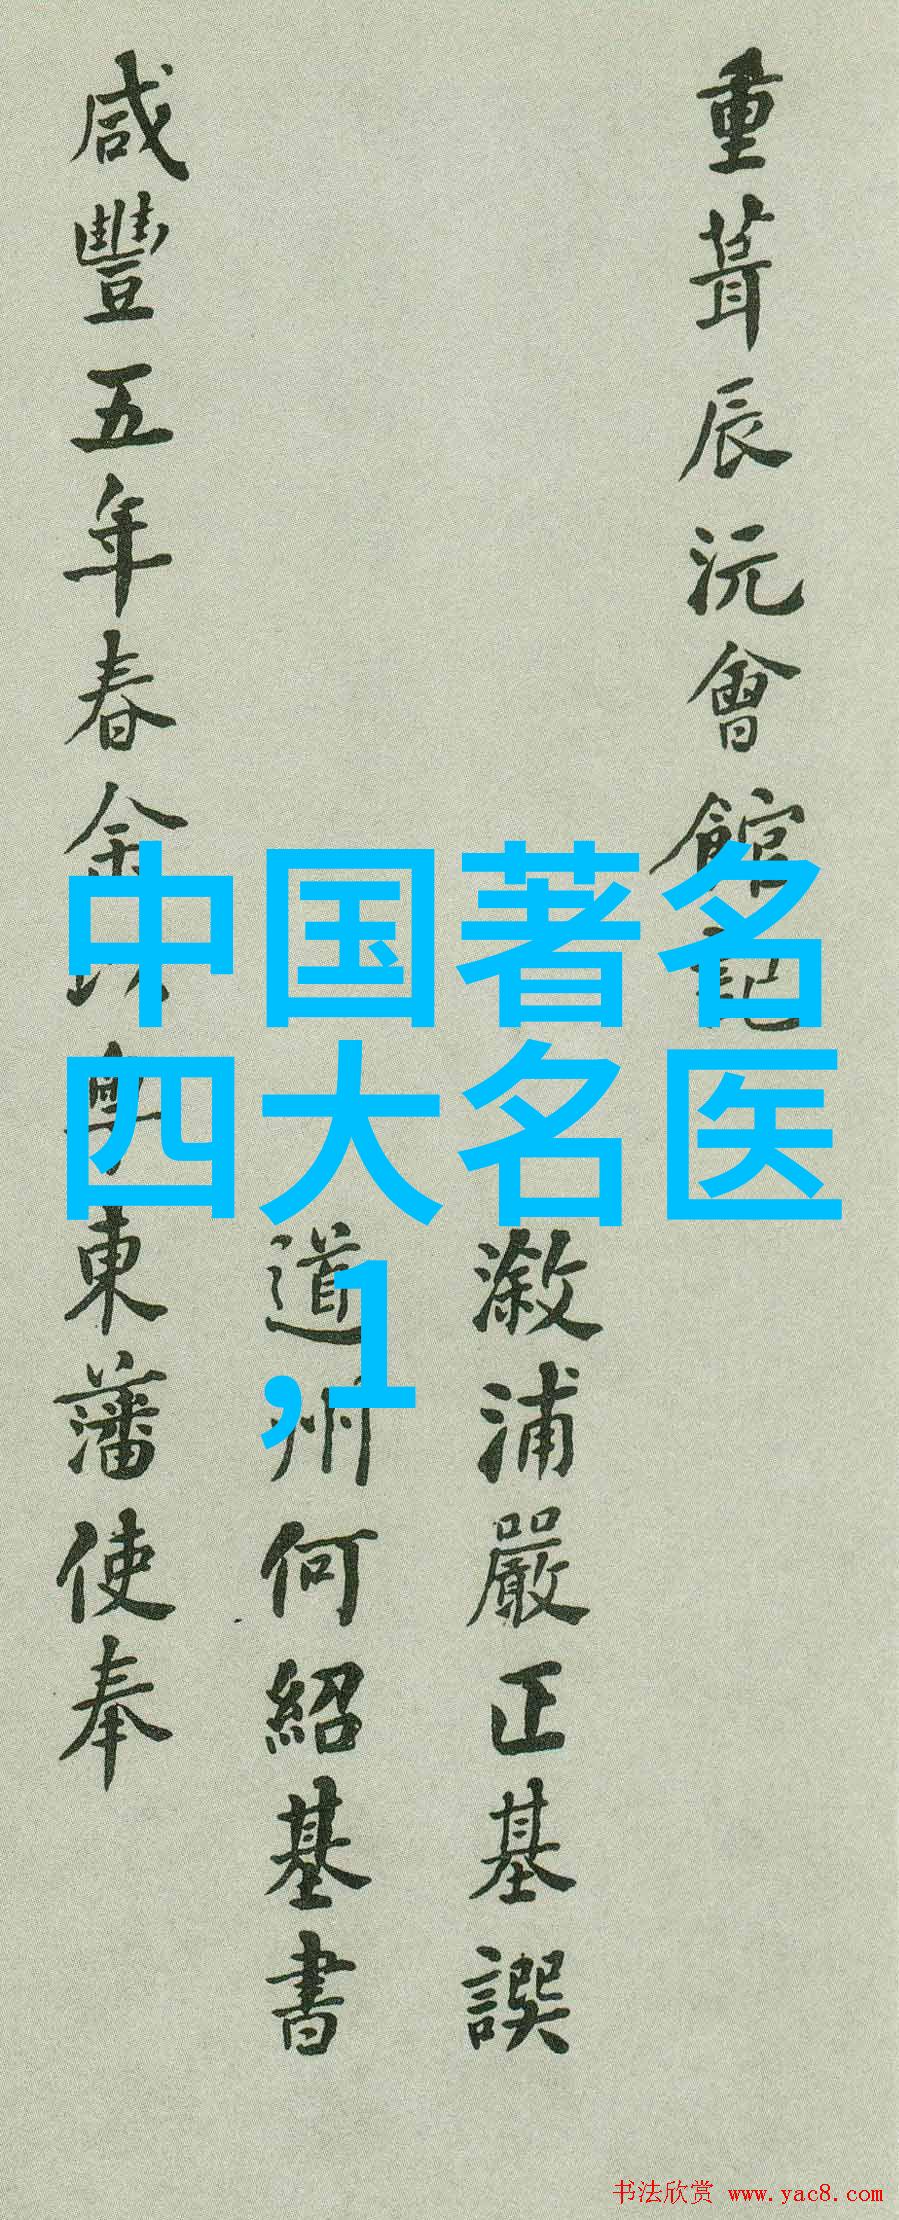 重葺辰沅會館記
溆浦嚴正基譔
道州何紹基書
咸豐五年春余以粵東藩使奉
中国著名
四大名医
,1
书法欣赏 www.yac8.com